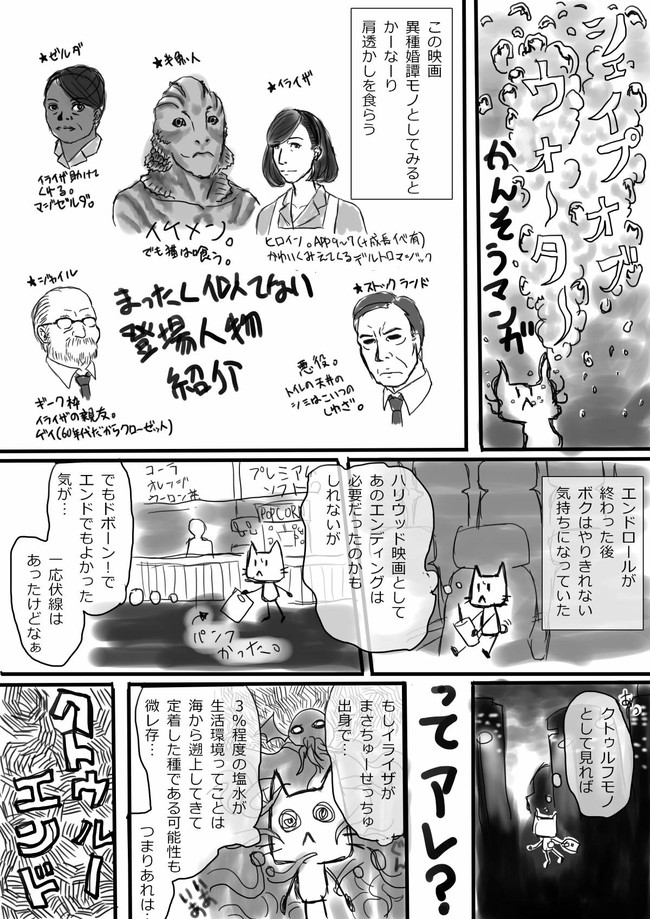 シェイプオブ
ウォーター
かんそうマンガ
この映画
異種婚譚モノとしてみると
かーなーり
肩透かしを食らう
★イライザ
ヒロイン。APP9~17(+成長イベ有)
かわいくみえてくるデルトロマジック
★半魚人
イケメン。
でも猫は喰う。
★ゼルダ
イライザ助けて
くれる。
マジゼルダ。
まったく似てない
登場人物
紹介
★ストックランド
悪役。
トイレの天井の
シミはこいつの
しわざ。
★ジャイル
ギーク枠
イライザの親友。
ゲイ(60年代だからクローゼット)
エンドロールが
終わった後
ボクはやりきれない
気持ちになっていた
ハリウッド映画として
あのエンディングは
必要だったのかも
しれないが
プレミアム
ソフト
POPCOR
コーラ
オレンジ
ウーロン茶
パンフ
かった。
でもドボーン!で
エンドでもよかった
気が…
一応伏線は
あったけどなぁ
あっ
クトゥルフモノ
として見れば
ってアレ?
もしイライザが
まさちゅーせっちゅ
出身で…
3%程度の塩水が
生活環境ってことは
海から遡上してきて
定着した種である可能性も
微レ存…
つまりあれは…
いあ
いあ
クトゥルー
エンド